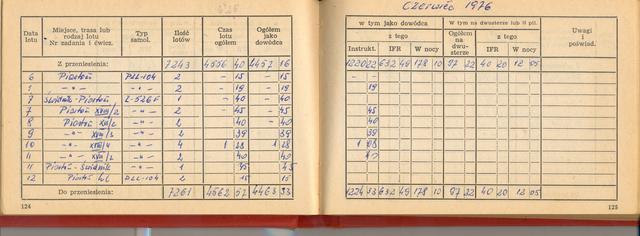 Czerwiec 1976
Data lotu | Miejsce, trasa lub rodzaj lotu Nr zadania i ćwicz. | Typ samol. | Ilość lotów | Czas lotu ogółem | Ogółem jako dowódca
w tym jako dowódca | W tym na dwusterze lub II pil. | Uwagi i poświad.
z tego | Ogółem na dwusterze | z tego
Instrukt. | IFR | W nocy | IFR | W nocy
Z przeniesienia: | 7243 | 4556 40 | 4457 16 | 1220 22 | 632 49 | 178 10 | 97 22 | 40 20 | 12 05
6 | Piastów | PZL-104 | 2 | - 15 | - 15 | - -
2 | - 19 | - 19 | 19
7 | Świdnik-Piastów | Z-526F | 1 | - 40 | - 40
7 | Piastów XVIII/2 | -"- | 2 | - 45 | - 45 | 45
8 | Piastów | -"- | 2 | 40 | - 40 | 40
9 | -"- | -"- | 2 | 39 | 39 | 39
10 | -"- | -"- | 4 | 1 28 | 1 28 | 1 08
11 | -"- | -"- | 2 | 40 | 40
11 | Piastów-Świdnik | -"- | 1 | 45 | 45
12 | Piastów | PZL-104 | 2 | 15 | 15
Do przeniesienia: | 7261 | 4562 57 | 4463 33 | 1224 33 | 632 49 | 178 10 | 97 22 | 40 20 | 12 05
124
125